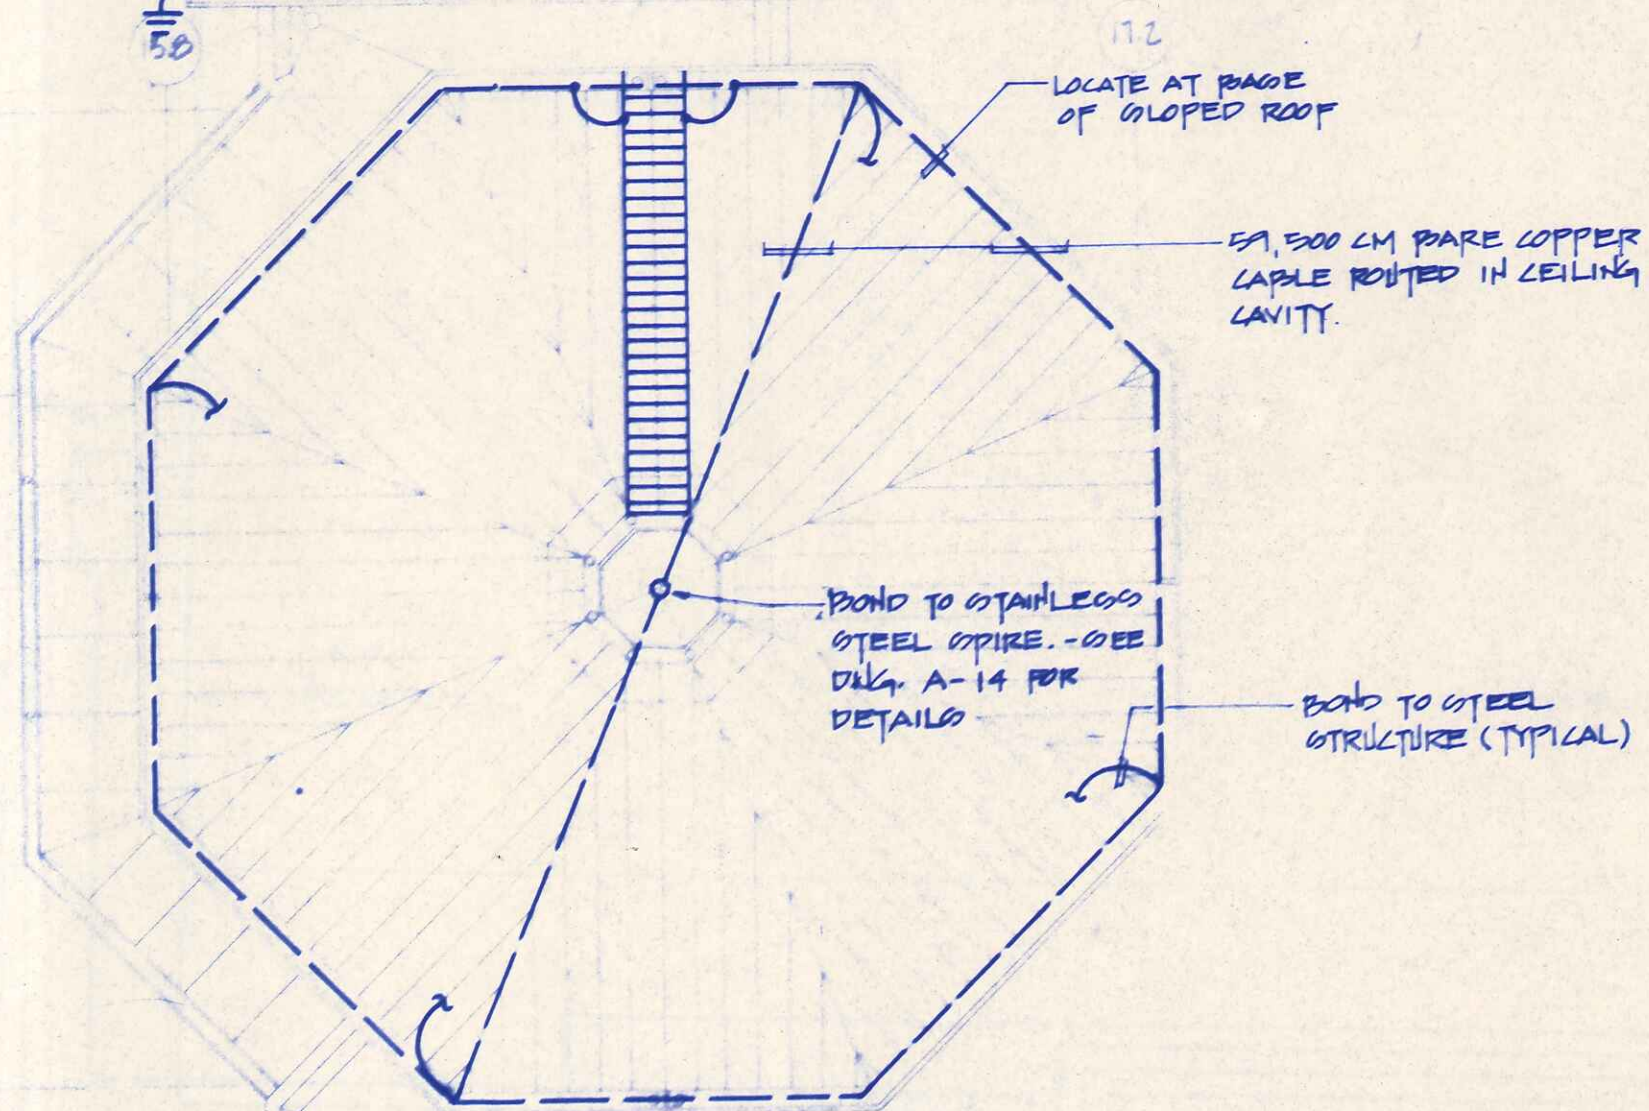 58
17.2
LOCATE AT BASE
OF SLOPED ROOF
59,500 CM BARE COPPER
CABLE ROUTED IN CEILING
CAVITY.
BOND TO STAINLESS
STEEL SPIRE. - SEE
DWG. A-14 FOR
DETAILS
BOND TO STEEL
STRUCTURE (TYPICAL)